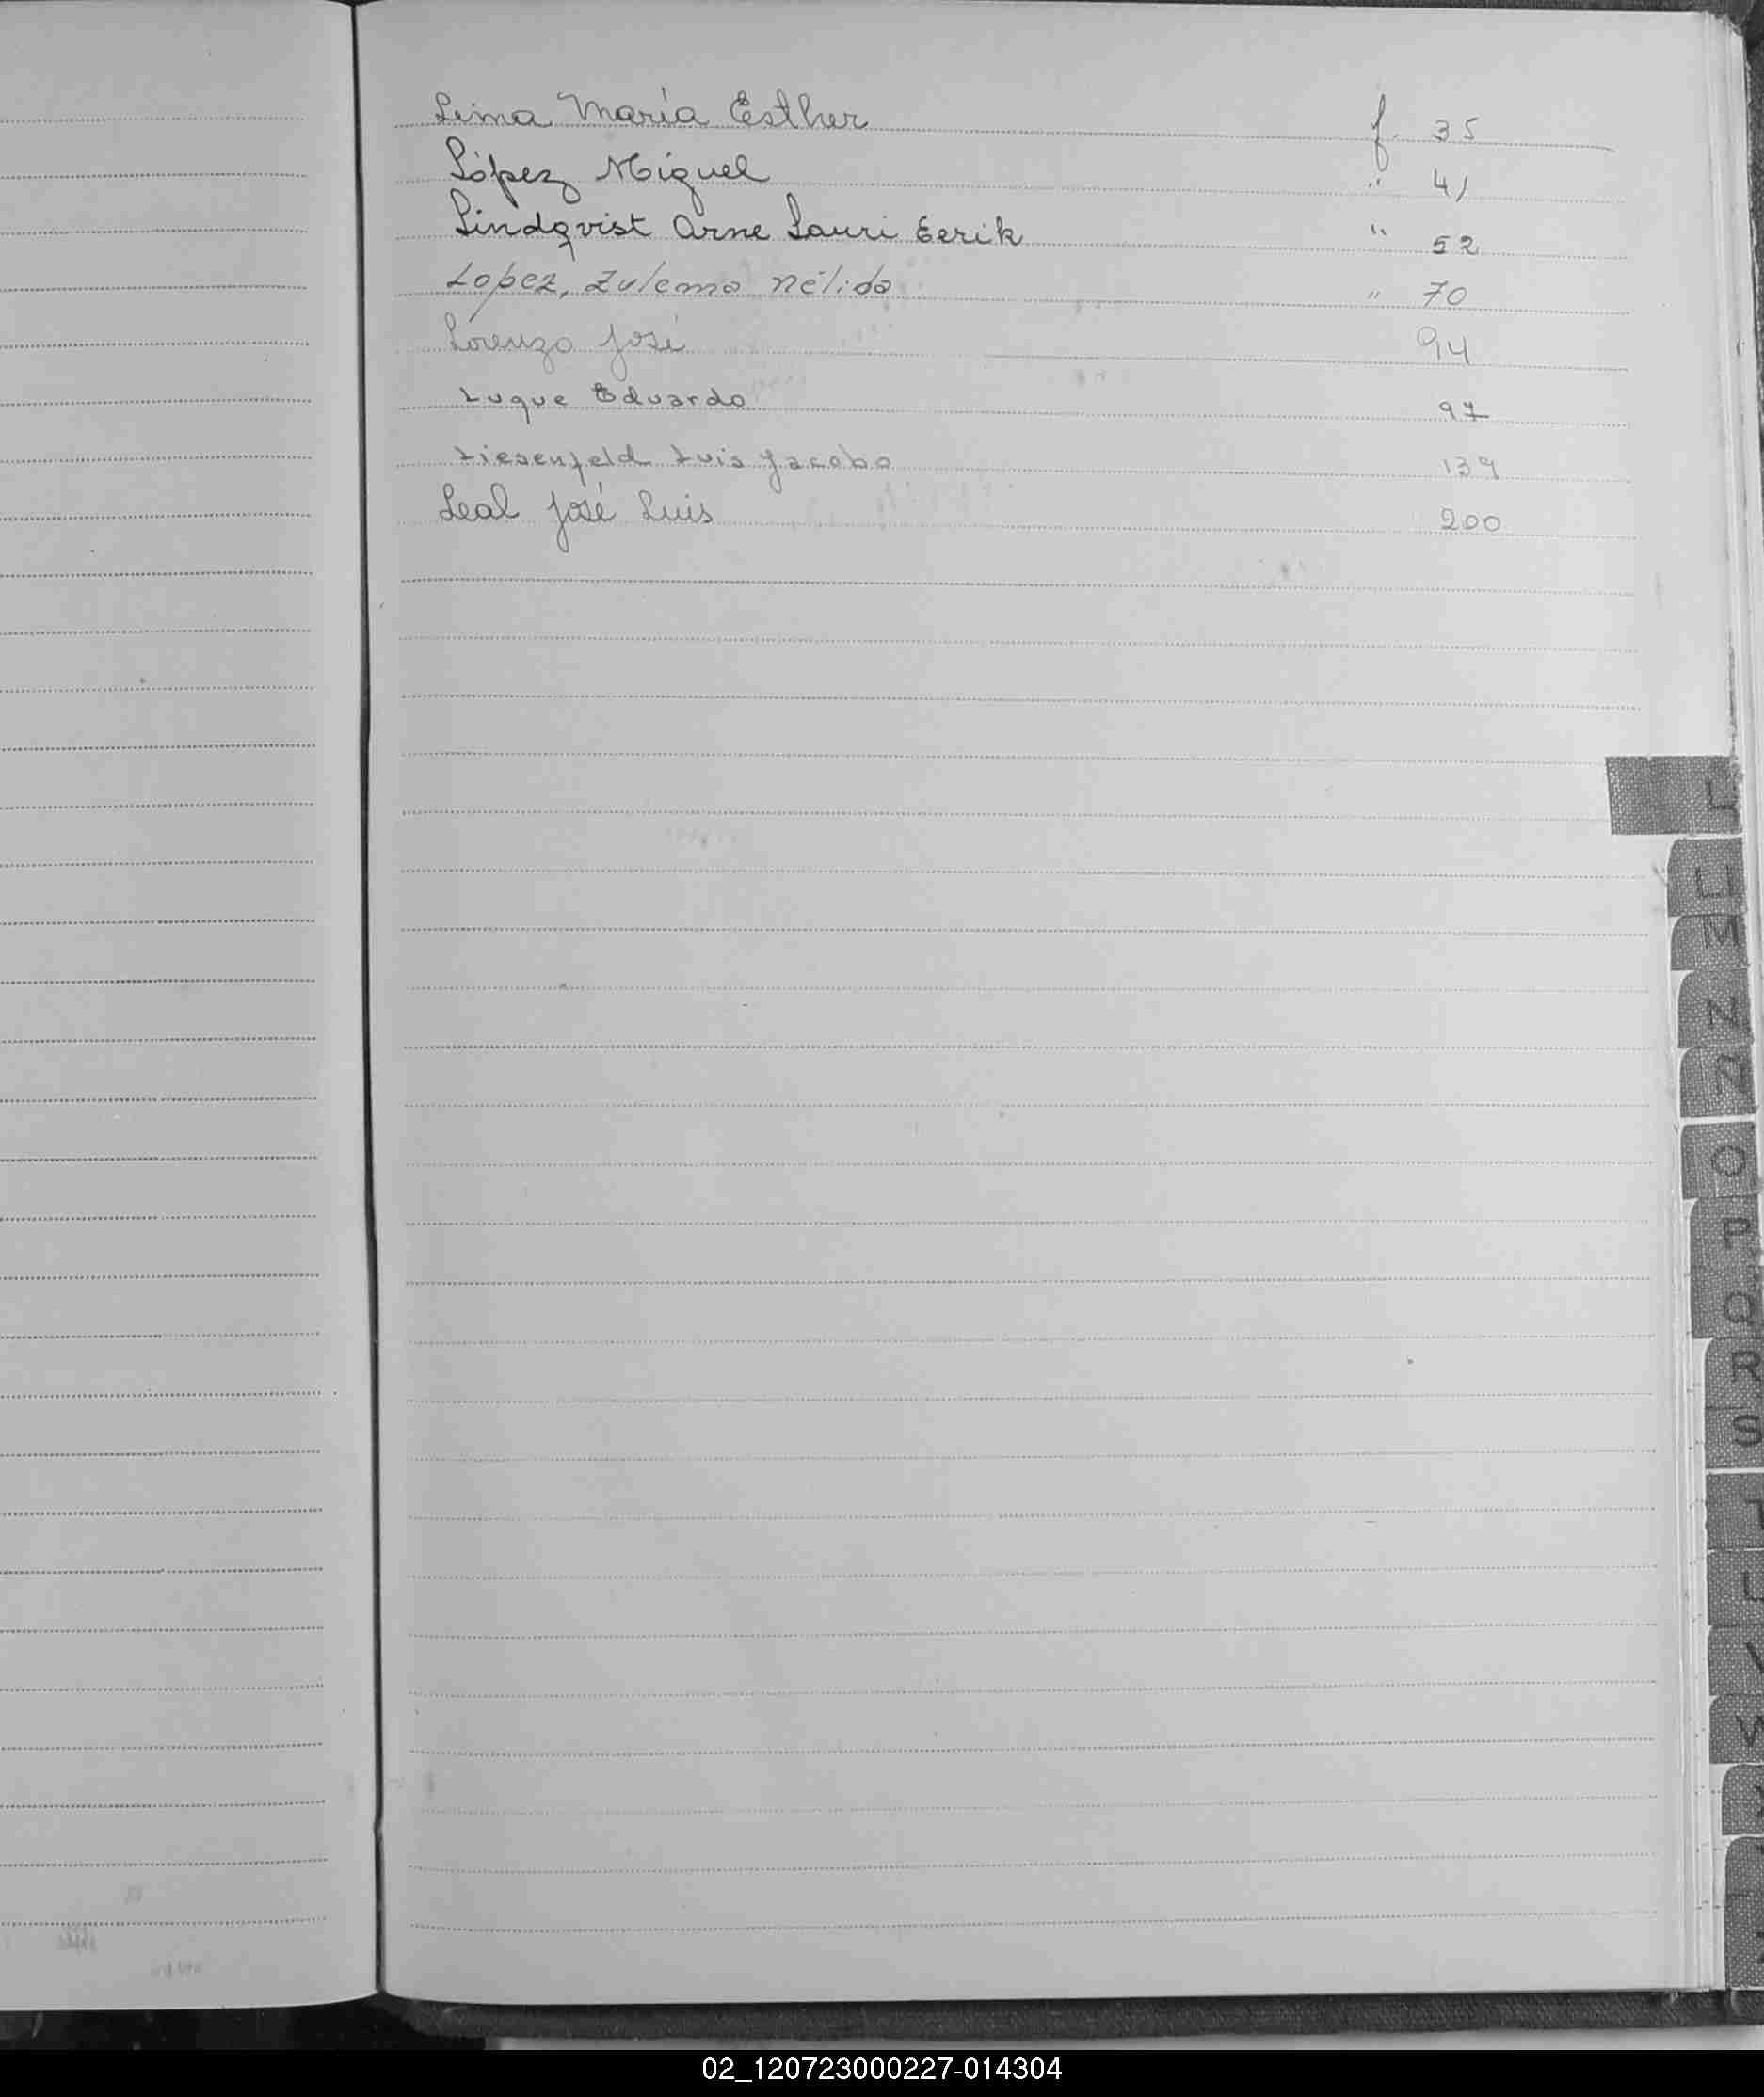 Lima María Esther f. 35
López Miguel " 41
Lindqvist Arne Lauri Eerik " 52
López, Zulema Nélida " 70
Lorenzo José 94
Luque Eduardo 97
Liesenfeld Luis Jacobo 139
Leal José Luis 200
L
Ll
M
N
Ñ
O
P
Q
R
S
T
U
V
W
02_120723000227-014304